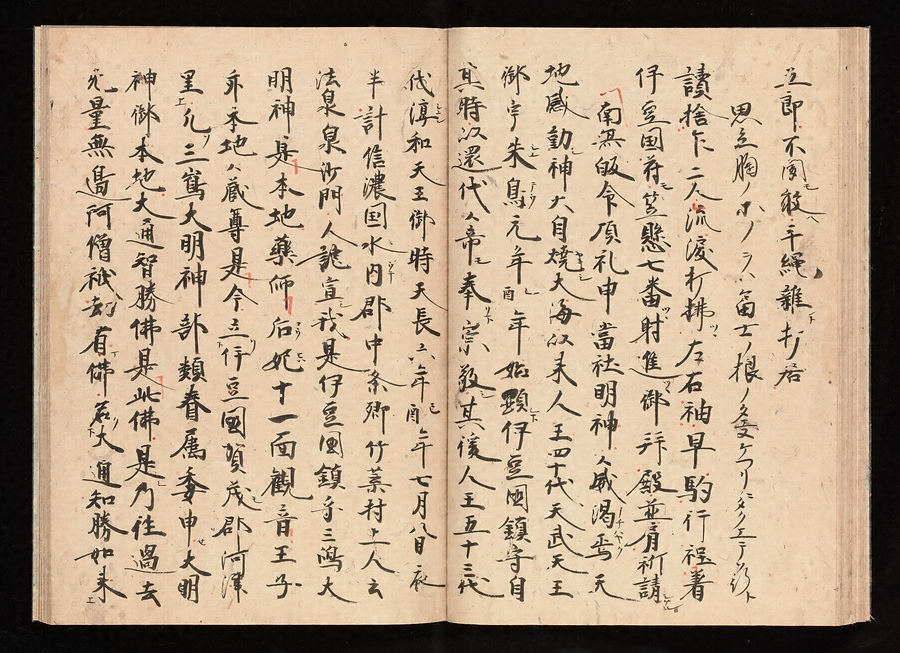 立即不聞敢手縄離打居
思立胸ノ ラハ富士ノ根ノ
讀捨乍二人流渡打拂左右袖早駒行程着
伊豆国府笠懸七番射進御拜殿並肩祈請
南無皈命頂礼申當社明神威渇焉天
地感動神大自燒大海以来人王四十代天武天王
御宇朱鳥元年酉年始顯伊豆國鎮守自
其時以還代々帝奉崇敬其後人王五十三代
代淳和天王御時天長六年酉年七月八日夜
半計信濃国水内郡中条郷竹葉村上人云
法泉泉沙門人詫宣我是伊豆國鎮守三嶋大
明神是本地藥師后妃十一面觀音王子
亦本地々藏尊是今立伊豆國賀茂郡河津
里凡三嶌大明神部類眷属委申大明
神御本地大通智勝佛是此佛是乃往過去
無量無邉阿僧祇劫有佛名大通知勝如来